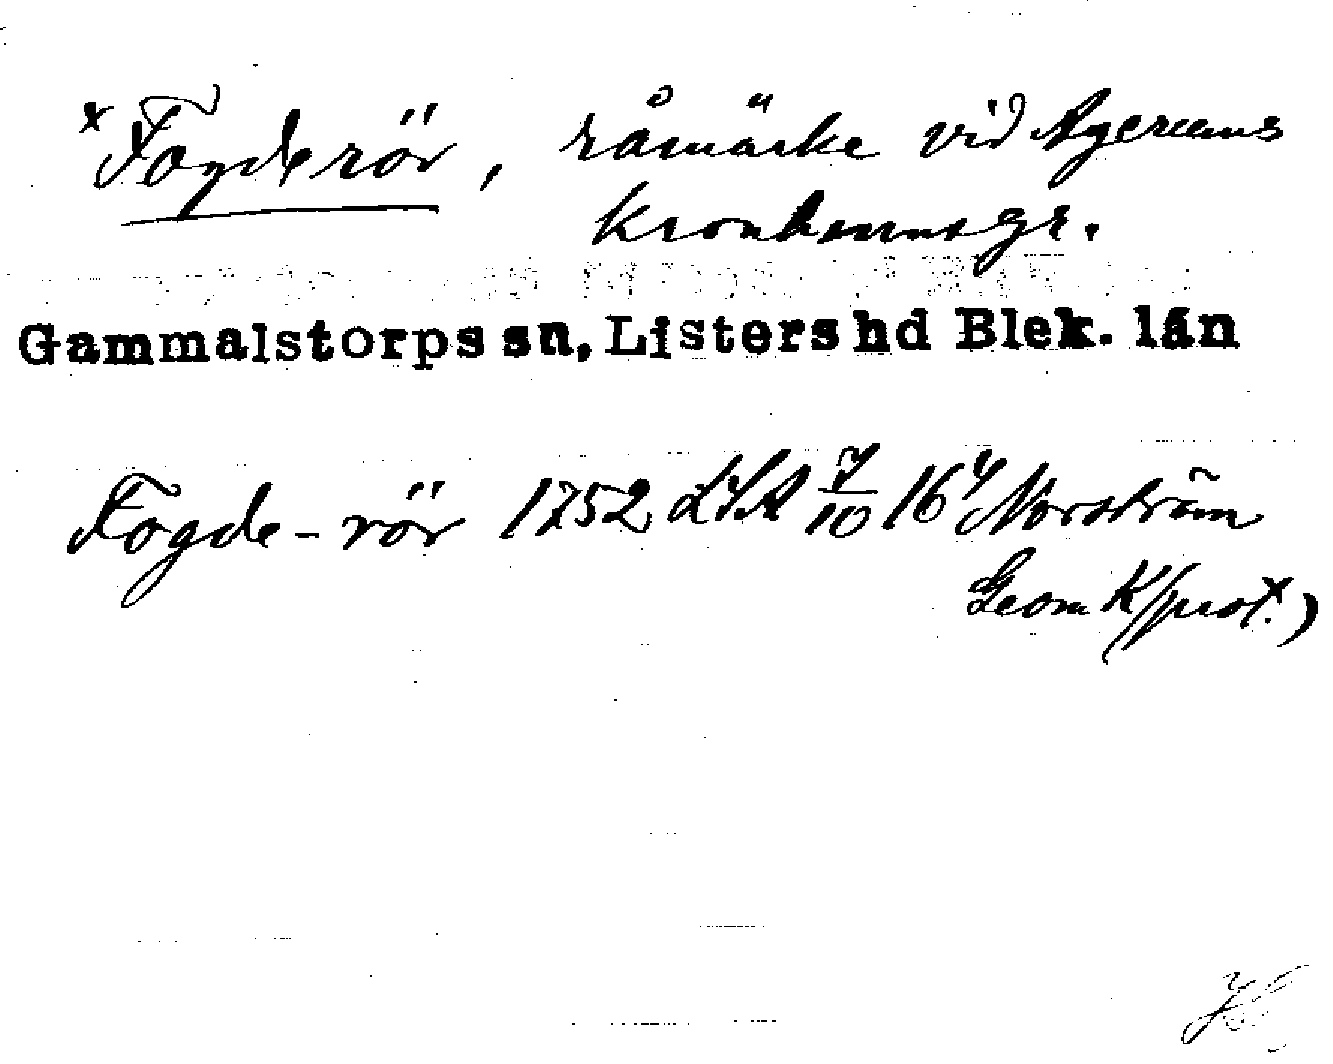 x Fogderör, råmärke vid Agerums
kronhemsgr.
Gammalstorps sn, Listers hd Blek. län
Fogde-rör 1752 LSA 7/10 16 Norström
Geom K/prot.)